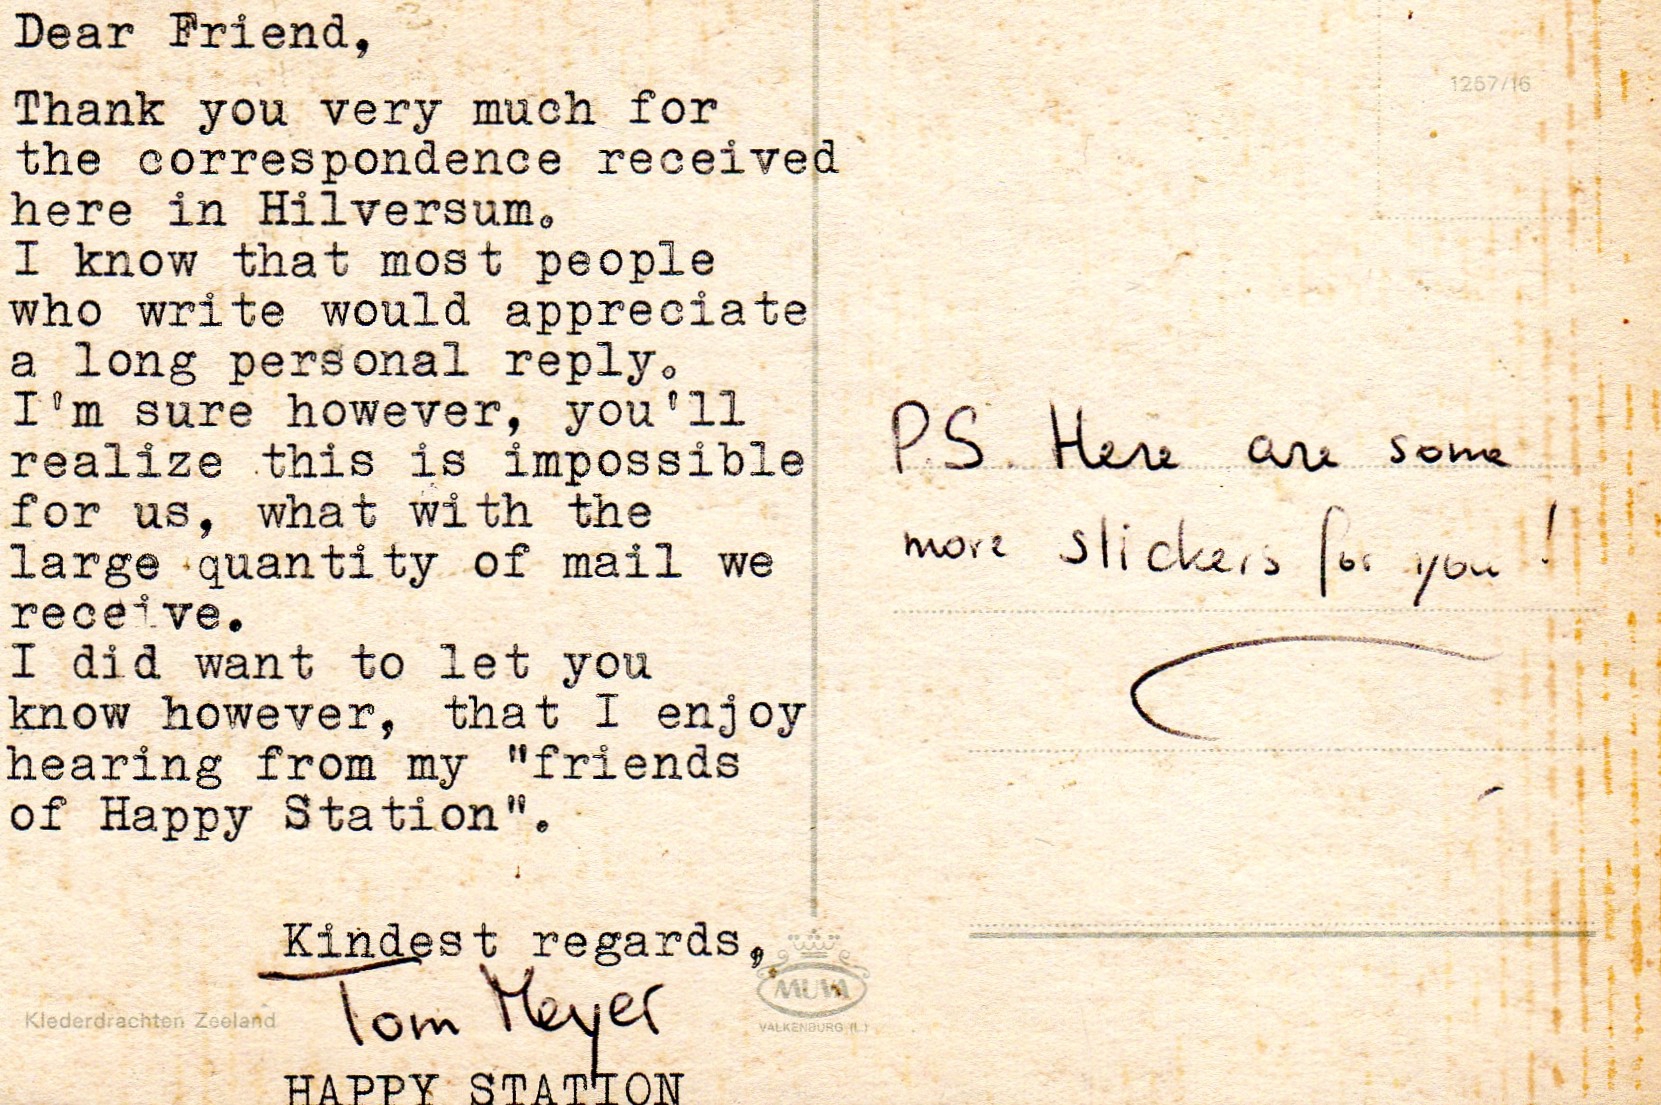 Dear Friend,
Thank you very much for
the correspondence received
here in Hilversum.
I know that most people
who write would appreciate
a long personal reply.
I'm sure however, you'll
realize this is impossible
for us, what with the
large quantity of mail we
receive.
I did want to let you
know however, that I enjoy
hearing from my "friends
of Happy Station".
Kindest regards,
Tom Meyer
HAPPY STATION
Klederdrachten Zeeland
MUVA
VALKENBURG (L.)
1257/16
P.S. Here are some
more stickers for you!